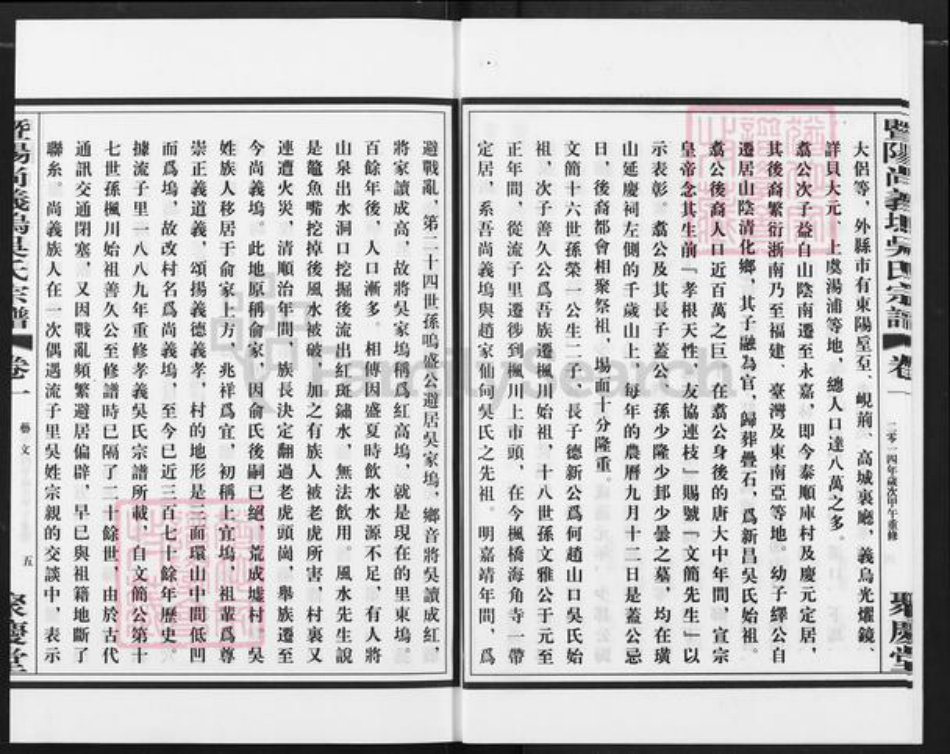 暨陽尚義塢吳氏宗譜 卷一 二零一四年歲次甲午重修 聚慶堂
大侶等、外縣市有東陽屋至、峴荊、高城裏廳、義烏光燿鏡、
詳貝大元、上虞湯浦等地，總人口達八萬之多。
翥公次子益自山陰南遷至永嘉，即今泰順庫村及慶元定居，
其後裔繁衍浙南乃至福建、臺灣及東南亞等地。幼子繹公自
遷居山陰清化鄉，其子融為官，歸葬疊石，爲新昌吳氏始祖。
翥公後裔人口近百萬之巨。在翥公身後的唐大中年間，宣宗
皇帝念其生前『孝根天性，友協連枝』賜號『文簡先生』以
示表彰。翥公及其長子蓋公、孫少隆少邽少曇之墓，均在璜
山延慶祠左側的千歲山上，每年的農曆九月十二日是蓋公忌
日，後裔都會相聚祭祖，場面十分隆重。
文簡十六世孫榮一公生二子，長子德新公爲何趙山口吳氏始
祖，次子善久公爲吾族遷楓川始祖，十八世孫文雅公于元至
正年間，從流子里遷徙到楓川上市頭，在今楓橋海角寺一帶
定居，系吾尚義塢與趙家仙何吳氏之先祖。明嘉靖年間，爲
避戰亂，第二十四世孫鳴盛公避居吳家塢，鄉音將吳讀成紅，
將家讀成高，故將吳家塢稱爲紅高塢，就是現在的里東塢。
百餘年後，人口漸多。相傳因盛夏時飲水水源不足，有人將
山泉出水洞口挖掘後流出紅斑鏽水，無法飲用。風水先生說
是鼇魚嘴挖掉後風水被破，加之有族人被老虎所害，村裏又
連遭火災，清順治年間，族長決定翻過老虎頭崗，舉族遷至
今尚義塢。此地原稱俞家，因俞氏後嗣已絕，荒成墟村。吳
姓族人移居于俞家上方，兆祥爲宜，初稱上宜塢，祖輩爲尊
崇正義道義，頌揚義德義孝，村的地形是三面環山中間低凹
而爲塢，故改村名爲尚義塢，至今已近三百七十餘年歷史。
據流子里一八八九年重修孝義吳氏宗譜所載，自文簡公第十
七世孫楓川始祖善久公至修譜時已隔了二十餘世，由於古代
通訊交通閉塞，又因戰亂頻繁避居偏辟，早已與祖籍地斷了
聯糸。尚義族人在一次偶遇流子里吳姓宗親的交談中，表示
暨陽尚義塢吳氏宗譜 卷一 藝文 五 聚慶堂
FamilySearch